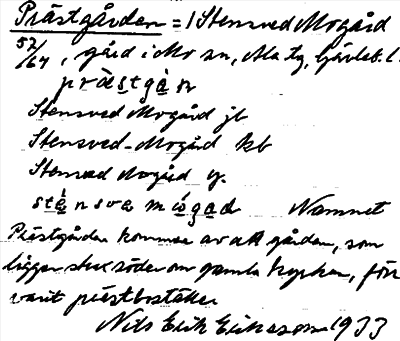 Prästgården = 1 Stensved Mogård
52/64, gård i Mo sn, Ala tg, Gävleb. l.
præ̀stgàn
Stensved Mogård jb
Stensved-Mogård kb
Stensved Mogård
stä́nsvæ mṓgad Namnet
Prästgården kommer av att gården, som
ligger strax söder om gamla kyrkan, förr
varit prästboställe
Nils Erik Eriksson 1933